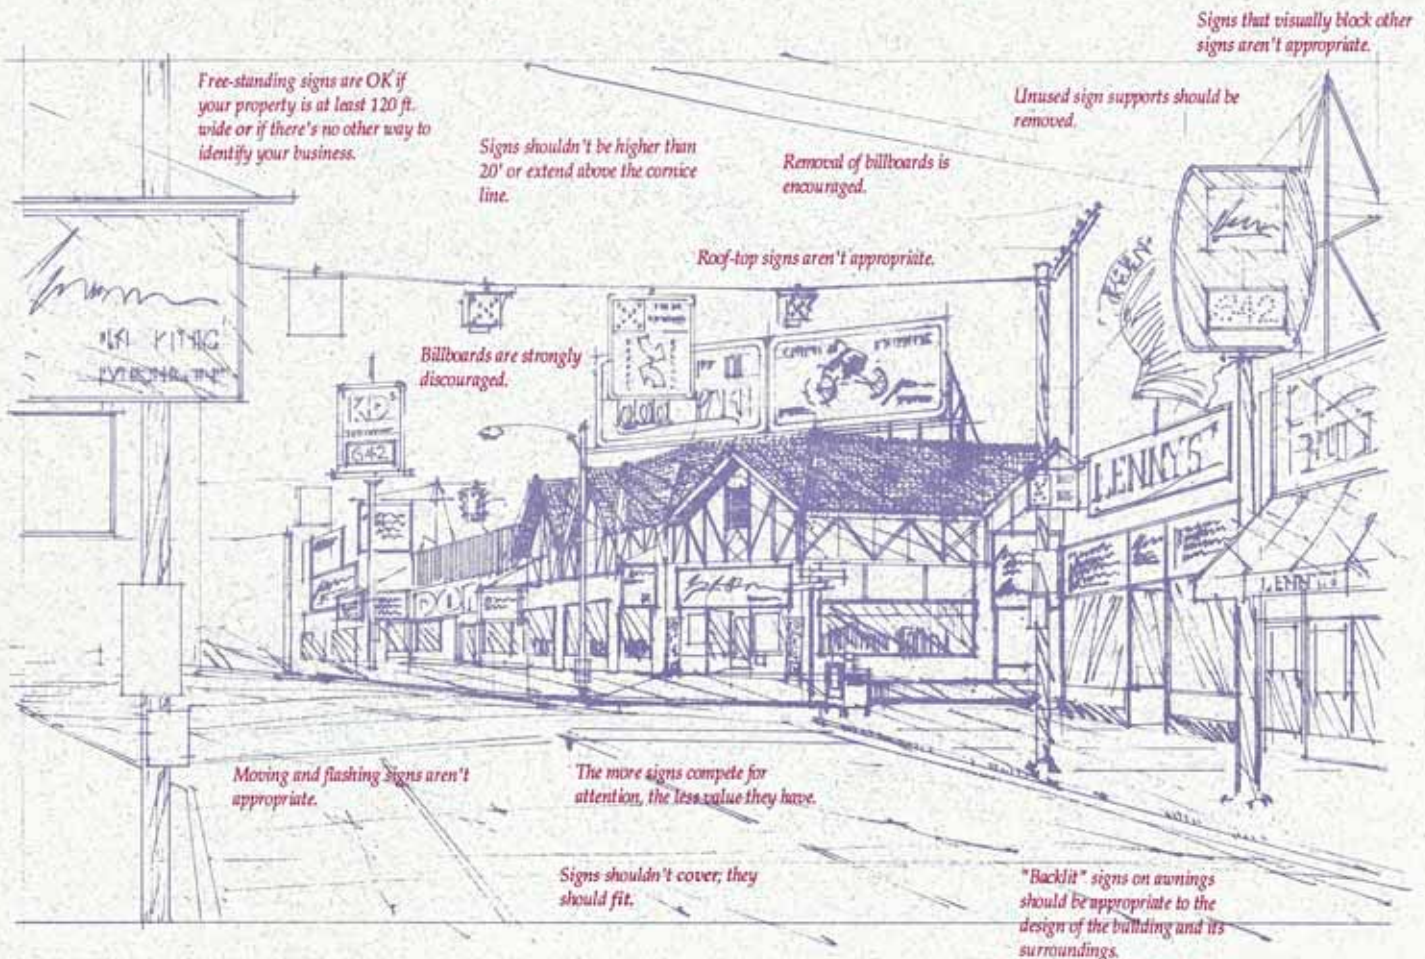 Signs that visually block other
signs aren't appropriate.
Free-standing signs are OK if
your property is at least 120 ft.
wide or if there's no other way to
identify your business.
Unused sign supports should be
removed.
Signs shouldn't be higher than
20' or extend above the cornice
line.
Removal of billboards is
encouraged.
Roof-top signs aren't appropriate.
Billboards are strongly
discouraged.
KD'S
642
LENNY'S
Moving and flashing signs aren't
appropriate.
The more signs compete for
attention, the less value they have.
Signs shouldn't cover; they
should fit.
"Backlit" signs on awnings
should be appropriate to the
design of the building and its
surroundings.